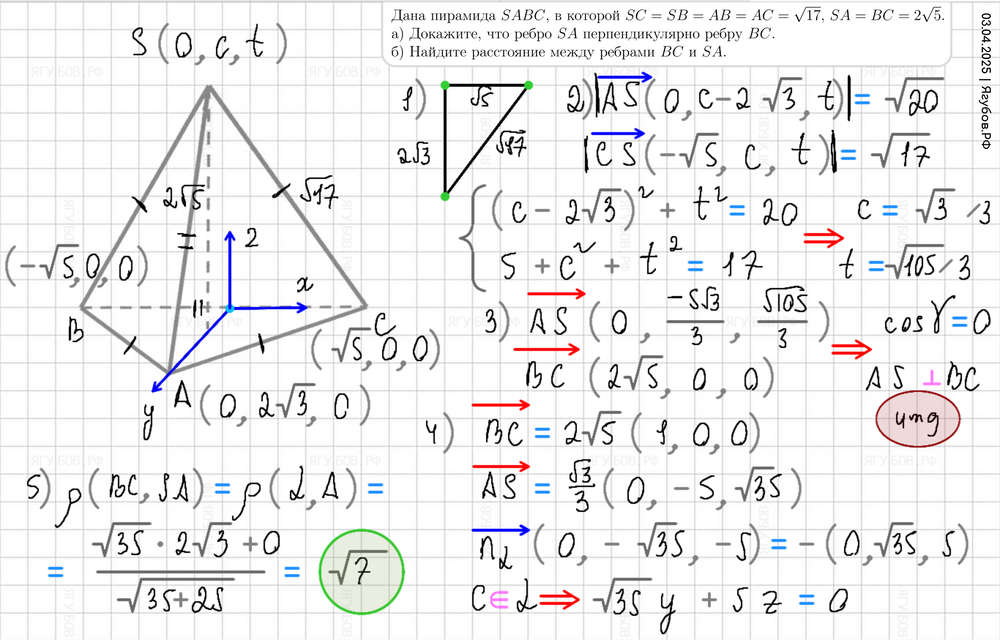 Дана пирамида SABC, в которой SC = SB = AB = AC = √17, SA = BC = 2√5.
а) Докажите, что ребро SA перпендикулярно ребру BC.
б) Найдите расстояние между ребрами BC и SA.
03.04.2025 | Ягубов.РФ
S (0, c, t)
2√5
√17
(-√5, 0, 0)
z
x
B
C
(√5, 0, 0)
y
A (0, 2√3, 0)
1)
√5
2√3
√17
2) |AS (0, c-2√3, t)| = √20
|CS (-√5, c, t)| = √17
(c - 2√3)² + t² = 20
5 + c² + t² = 17
⇒
c = √3/3
t = √105/3
3) AS (0, -5√3/3, √105/3)
BC (2√5, 0, 0)
⇒
cos γ = 0
AS ⊥ BC
чтд
4) BC = 2√5 (1, 0, 0)
AS = √3/3 (0, -5, √35)
n_α (0, -√35, -5) = -(0, √35, 5)
C ∈ α ⇒ √35 y + 5 z = 0
5) ρ(BC, SA) = ρ(α, A) =
= (√35 · 2√3 + 0)/√(35+25) = √7